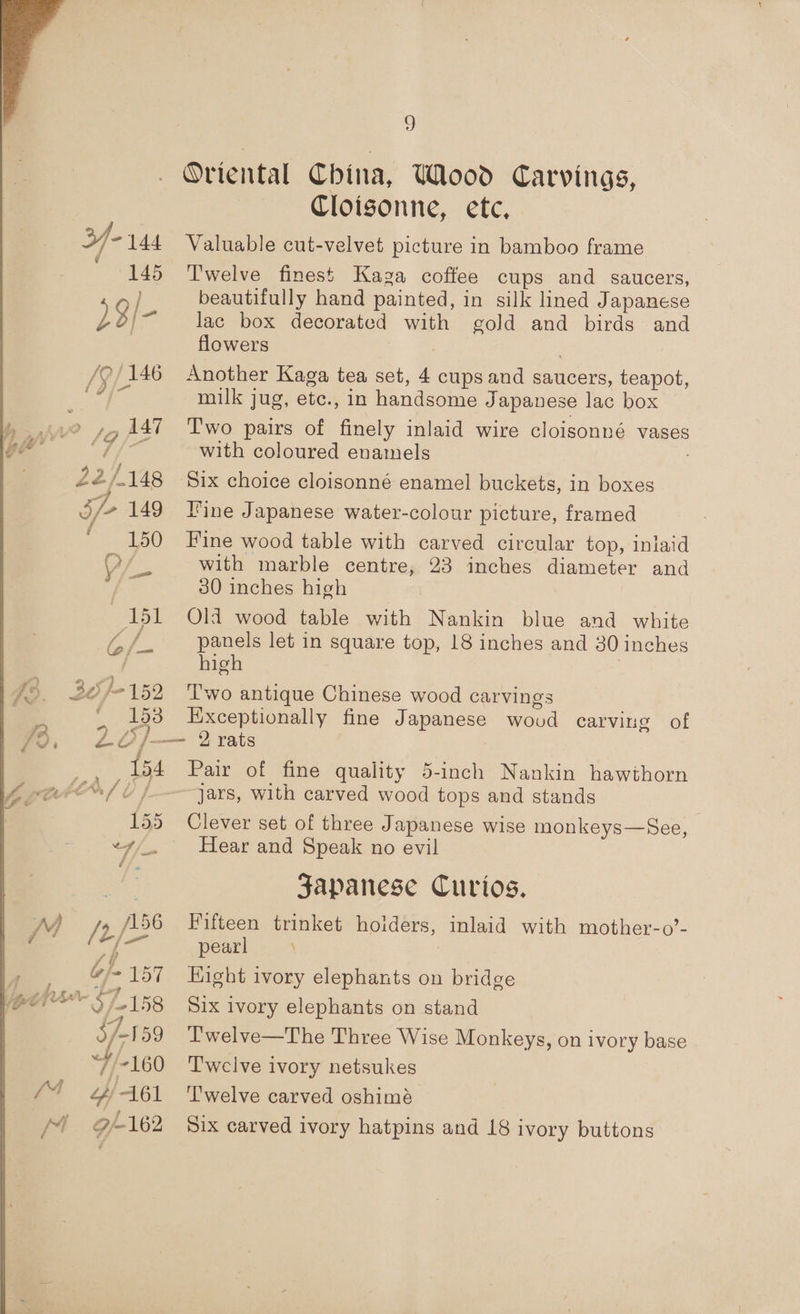 9
Oriental China, Wood Carvings,
Cloisonne, etc.
144 Valuable cut-velvet picture in bamboo frame
145 Twelve finest Kaga coffee cups and saucers,
beautifully hand painted, in silk lined Japanese
lac box decorated with gold and birds and
flowers
146 Another Kaga tea set, 4 cups and saucers, teapot,
milk jug, etc., in handsome Japanese lac box
147 Two pairs of finely inlaid wire cloisonné vases
with coloured enamels
22/- 148 Six choice cloisonné enamel buckets, in boxes
5/- 149 Fine Japanese water-colour picture, framed
150 Fine wood table with carved circular top, inlaid
with marble centre, 23 inches diameter and
30 inches high
151 Old wood table with Nankin blue and white
6/- panels let in square top, 18 inches and 30 inches
high
30/- 152 Two antique Chinese wood carvings
153 Exceptionally fine Japanese wood carving of
20/- 2 rats
154 Pair of fine quality 5-inch Nankin hawthorn
jars, with carved wood tops and stands
155 Clever set of three Japanese wise monkeys—See,
Hear and Speak no evil
Japanese Curios.
M 12/- 156 Fifteen trinket holders, inlaid with mother-o'-
pearl
6/- 157 Eight ivory elephants on bridge
5/- 158 Six ivory elephants on stand
5/- 159 Twelve—The Three Wise Monkeys, on ivory base
160 Twelve ivory netsukes
M 4/- 161 Twelve carved oshimè
M 9/- 162 Six carved ivory hatpins and 18 ivory buttons